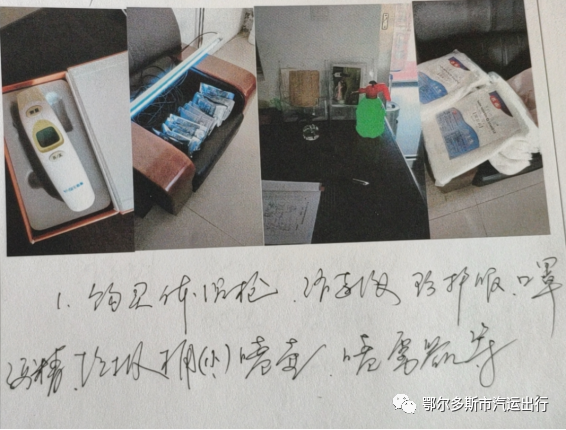 1. 购买体温枪、消毒液、防护服、口罩
酒精、垃圾桶(小)喷壶、喷雾器等
鄂尔多斯市汽运出行